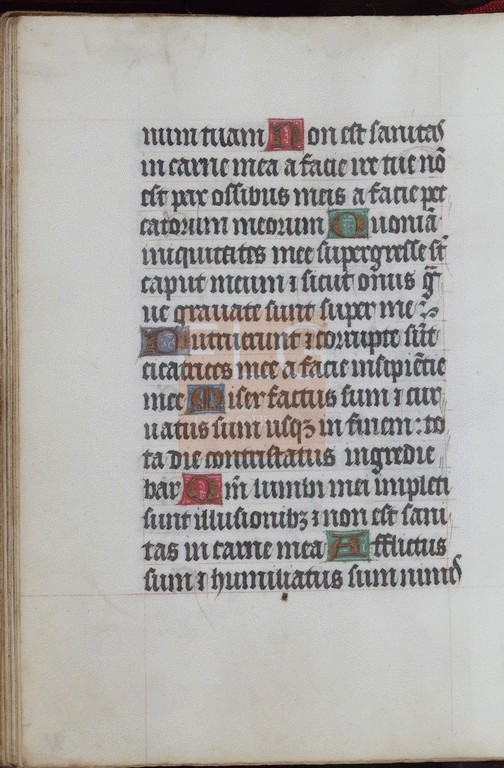 num tuam Non est sanitas
in carne mea a facie ire tue nō
est pax ossibus meis a facie pec
catorum meorum Quoniā
iniquitates mee supergresse sūt
caput meum ⁊ sicut onus gͣ
ue grauate sunt super me
Putruerunt ⁊ corrupte sūt
cicatrices mee a facie insipiētie
mee Miser factus sum ⁊ cur
uatus sum usqꝫ in finem : to
ta die contristatus ingredie
bar Qm̄ lumbi mei impleti
sunt illusionibꝫ ⁊ non est sani
tas in carne mea Afflictus
sum ⁊ humiliatus sum nimis